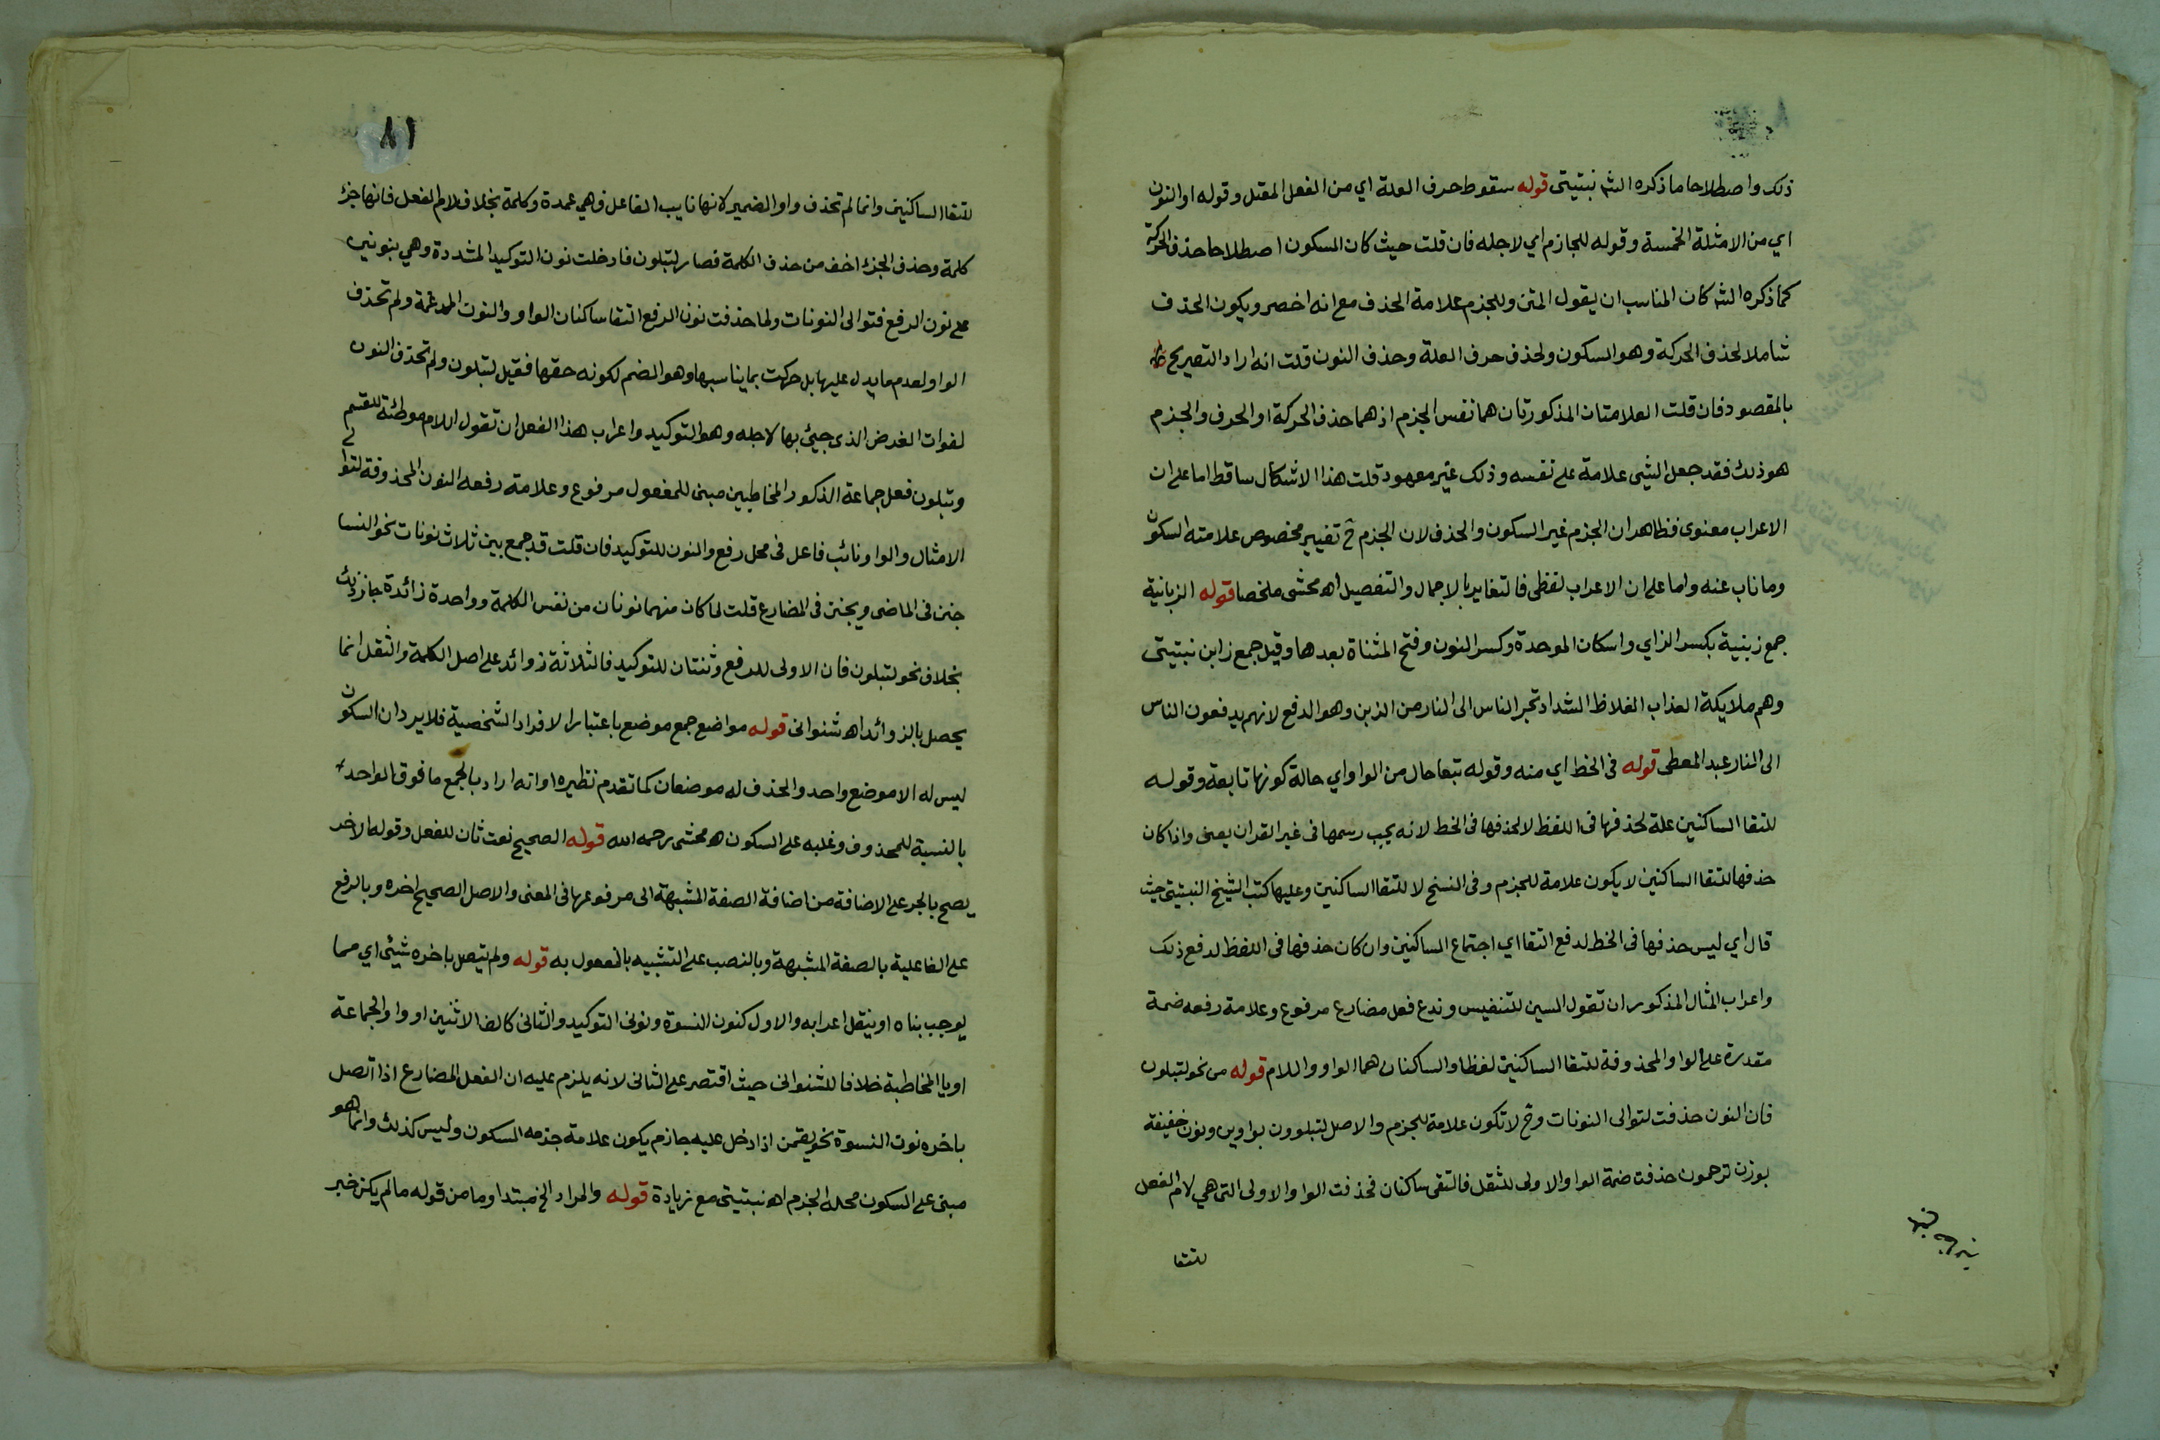 ذلك واصطلاحا ما ذكره الشه نبتيتى قوله سقوط حرف العلة اي من الفعل المعتل وقوله او النون
اي من الامثلة الخمسة وقوله للجازم اي لاجله فان قلت حيث كان السكون اصطلاحا حذف الحركة
كما ذكره الشه كان المناسب ان يقول المتن وللجزم علامة الحذف مع انه اخصر ويكون الحذف
شاملا لحذف الحركة وهو السكون ولحذف حرف العلة وحذف النون قلت انه اراد التصريح
بالمقصود فان قلت العلامتان المذكورتان هما نفس الجزم اذ هما حذف الحركة او الحرف والجزم
هو ذلك فقد جعل الشيى علامة على نفسه وذلك غير معهود قلت هذا الاشكال ساقط اما على ان
الاعراب معنوى فظاهر ان الجزم غير السكون والحذف لان الجزم ح تغيير مخصوص علامته السكون
وما ناب عنه واما على ان الاعراب لفظى فالتغاير بالاجمال والتفصيل اه محشى ملخصا قوله الزبانية
جمع زبنية بكسر الزاي واسكان الموحدة وكسر النون وفتح المثناة بعدها وقيل جمع زابن نبتيتى
وهم ملايكة العذاب الغلاظ الشداد تجر الناس الى النار من الزبن وهو الدفع لانهم يدفعون الناس
الى النار عبد المعطى قوله فى الخط اي منه وقوله تبعا حال من الواو اي حالة كونها تابعة وقوله
للتقا الساكنين علة لحذفها فى اللفظ لا لحذفها فى الخط لانه يجب رسمها فى غير القران يعنى واذا كان
حذفها للتقا الساكنين لا يكون علامة للجزم وفى النسخ لا للتقا الساكنين وعليها كتب الشيخ النبتيتى حيث
قال اي ليس حذفها فى الخط لدفع التقا اي اجتماع الساكنين وان كان حذفها فى اللفظ لدفع ذلك
واعراب المثال المذكور ان تقول السين للتنفيس وندع فعل مضارع مرفوع وعلامة رفعه ضمة
مقدرة على الواو المحذوفة للتقا الساكنين لفظا والساكنان هما الواو واللام قوله من نحو لتبلون
فان النون حذفت لتوالى النونات وح لا تكون علامة للجزم والاصل لتبلوون بواوين ونون خفيفة
بوزن ترحمون حذفت ضمة الواو الاولى للثقل فالتقى ساكنان فحذفت الواو الاولى التى هي لام الفعل
للتقا
٨١
للتقا الساكنين وانما لم تحذف واو الضمير لانها نايب الفاعل فهي عمدة وكلمة بخلاف لام الفعل فانها جزء
كلمة وحذف الجزء اخف من حذف الكلمة فصار لتبلون فادخلت نون التوكيد المشددة وهي بنونين
على نون الرفع فتوالى النونات ولما حذفت نون الرفع التقا ساكنان الواو والنون المدغمة ولم تحذف
الواو لعدم ما يدل عليها بل حركت بما يناسبها وهو الضم لكونه حقها فقيل لتبلون ولم تحذف النون
لفوات الغرض الذى جيئ بها لاجله وهو التوكيد واعراب هذا الفعل ان تقول اللام موطئة للقسم
وتبلون فعل جماعة الذكور المخاطبين مبنى للمفعول مرفوع وعلامة رفعه النون المحذوفة لتوالى
الامثال والواو نائب فاعل فى محل رفع والنون للتوكيد فان قلت قد جمع بين ثلاث نونات نحو النسا
جنن فى الماضى ويجنن فى المضارع قلت لما كان منهما نونان من نفس الكلمة وواحدة زائدة جاز ذلك
بخلاف نحو لتبلون فان الاولى للرفع وثنتان للتوكيد فالثلاثة زوائد على اصل الكلمة والثقل انما
يحصل بالزوائد اه شنوانى قوله مواضع جمع موضع باعتبار الافراد الشخصية فلا يرد ان السكون
ليس له الا موضع واحد والحذف له موضعان كما تقدم نظيره او انه اراد بالجمع ما فوق الواحد
بالنسبة للمحذوف وغلبه على السكون ه محشى رحمه الله قوله الصحيح نعت ثان للفعل وقوله الاخر
يصح بالجر على الاضافة من اضافة الصفة المشبهة الى مرفوعها فى المعنى والاصل الصحيح اخره وبالرفع
على الفاعلية بالصفة المشبهة وبالنصب على التشبيه بالمفعول به قوله ولم يتصل باخره شيئى اي مما
يوجب بناه او ينقل اعرابه والاول كنون النسوة ونونى التوكيد والثانى كالف الاثنين او واو الجماعة
او يا المخاطبة خلافا للشنوانى حيث اقتصر على الثانى لانه يلزم عليه ان الفعل المضارع اذا اتصل
باخره نون النسوة نحو يقمن اذا دخل عليه جازم يكون علامة جزمه السكون وليس كذلك وانما هو
مبنى على السكون محله الجزم اه نبتيتى مع زيادة قوله والمراد الخ مبتدا وما من قوله ما لم يكن خبر